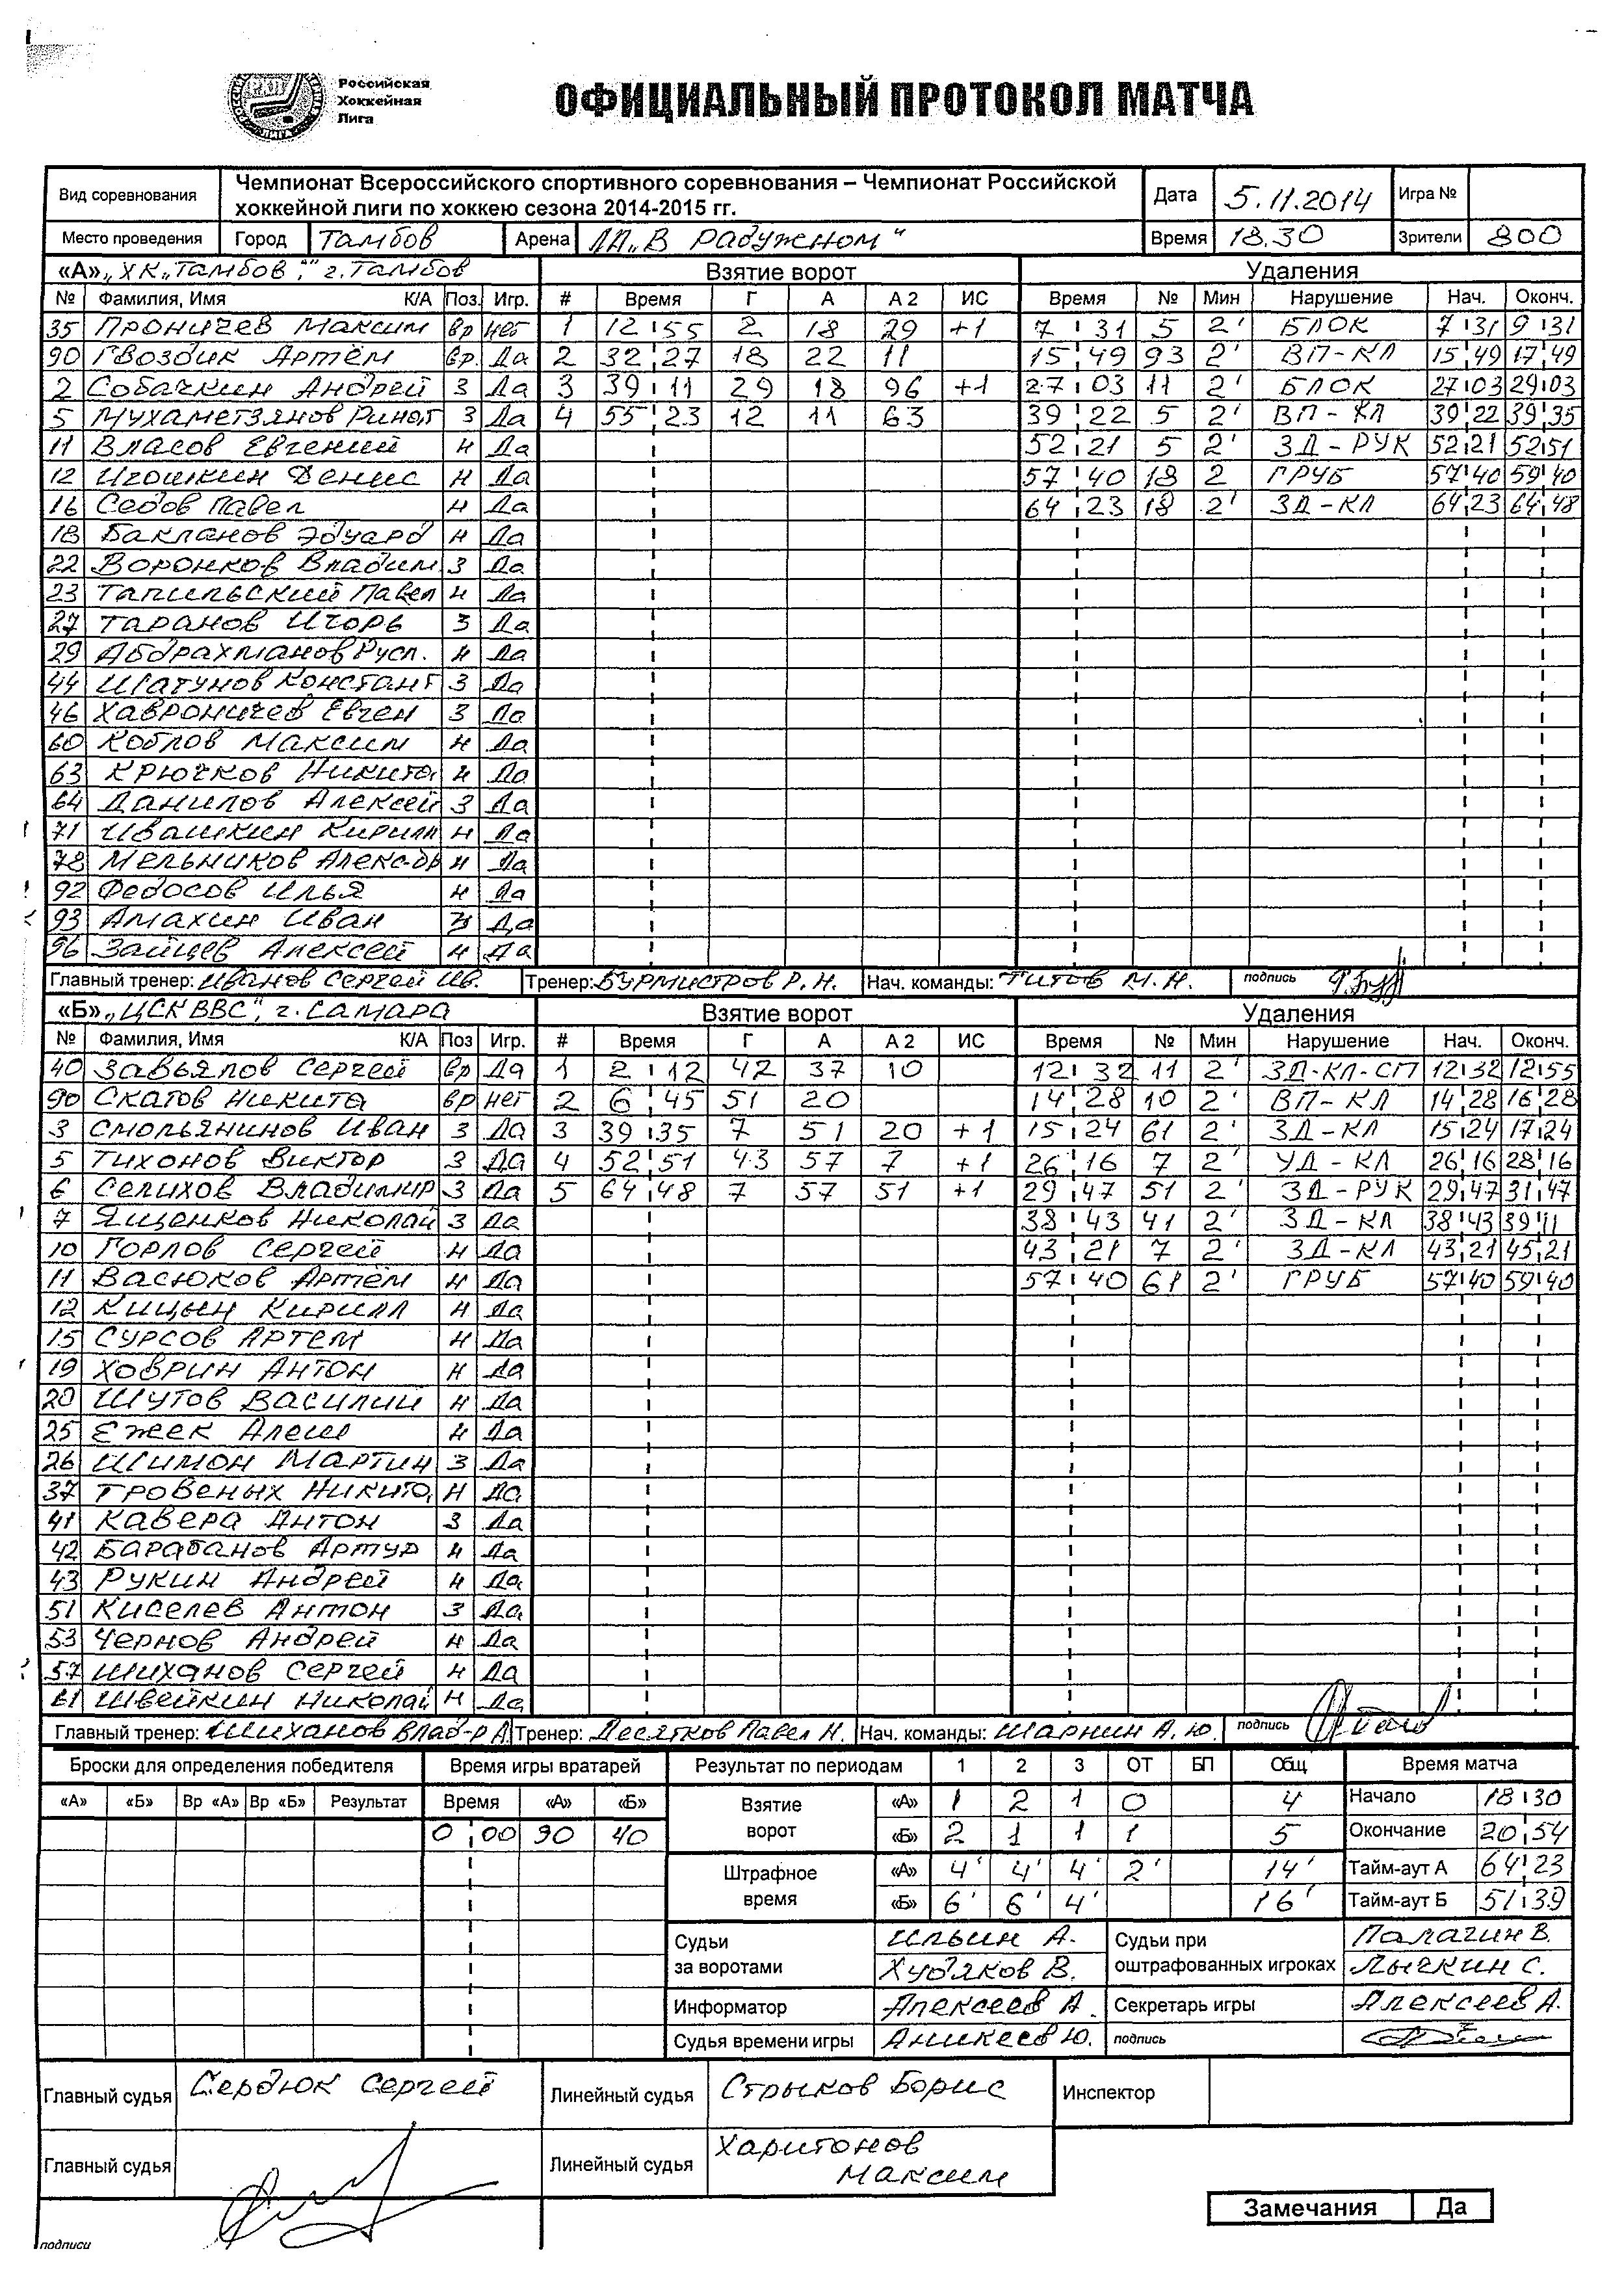 Российская
Хоккейная
Лига
ОФИЦИАЛЬНЫЙ ПРОТОКОЛ МАТЧА
Вид соревнования Чемпионат Всероссийского спортивного соревнования – Чемпионат Российской хоккейной лиги по хоккею сезона 2014-2015 гг. Дата 5.11.2014 Игра №
Место проведения Город Тамбов Арена ЛД „В Радужном" Время 18.30 Зрители 800
«А» „ХК „Тамбов", г. Тамбов Взятие ворот Удаления
№ Фамилия, Имя К/А Поз. Игр. # Время Г А А 2 ИС Время № Мин Нарушение Нач. Оконч.
35 Проничев Максим вр нет 1 12 55 2 18 29 +1 7 31 5 2' БЛОК 7 31 9 31
90 Гвоздик Артём вр. Да 2 32 27 18 22 11 15 49 93 2' ВП-КЛ 15 49 17 49
2 Собачкин Андрей З Да 3 39 11 29 18 96 +1 27 03 11 2' БЛОК 27 03 29 03
5 Мухаметзянов Ринат З Да 4 55 23 12 11 63 39 22 5 2' ВП-КЛ 39 22 39 35
11 Власов Евгений Н Да 52 21 5 2' ЗД-РУК 52 21 52 51
12 Игошкин Денис Н Да 57 40 18 2 ГРУБ 57 40 59 40
16 Седов Павел Н Да 64 23 18 2' ЗД-КЛ 64 23 64 48
18 Бакланов Эдуард Н Да
22 Воронков Владим З Да
23 Тапильский Павел Н Да
27 Таранов Игорь З Да
29 Абдрахманов Русл. Н Да
44 Шатунов Констант З Да
46 Хавроничев Евген З Да
60 Коблов Максим Н Да
63 Крючков Никита Н Да
64 Данилов Алексей З Да
71 Ивашкин Кирилл Н Да
78 Мельников Алекс-др Н Да
92 Федосов Илья Н Да
93 Амахин Иван Да
96 Зайцев Алексей Н Да
Главный тренер: Иванов Сергей Ив. Тренер: Бурмистров Р.Н. Нач. команды: Титов М.Н. подпись
«Б» „ЦСК ВВС", г. Самара Взятие ворот Удаления
№ Фамилия, Имя К/А Поз Игр. # Время Г А А 2 ИС Время № Мин Нарушение Нач. Оконч.
40 Завьялов Сергей вр Да 1 2 12 42 37 10 12 32 11 2' ЗД-КЛ-СП 12 32 12 55
90 Скатов Никита вр нет 2 6 45 51 20 14 28 10 2' ВП-КЛ 14 28 16 28
3 Смольянинов Иван З Да 3 39 35 7 51 20 +1 15 24 61 2' ЗД-КЛ 15 24 17 24
5 Тихонов Виктор З Да 4 52 51 43 57 7 +1 26 16 7 2' УД-КЛ 26 16 28 16
6 Селихов Владимир З Да 5 64 48 7 57 51 +1 29 47 51 2' ЗД-РУК 29 47 31 47
7 Ященков Николай З Да 38 43 41 2' ЗД-КЛ 38 43 39 11
10 Горлов Сергей Н Да 43 21 7 2' ЗД-КЛ 43 21 45 21
11 Васюков Артём Н Да 57 40 61 2' ГРУБ 57 40 59 40
12 Кицын Кирилл Н Да
15 Сурсов Артем Н Да
19 Ховрин Антон Н Да
20 Шутов Василий Н Да
25 Ежек Алеш Н Да
26 Шимон Мартин З Да
37 Тровеных Никита Н Да
41 Кавера Антон З Да
42 Барабанов Артур Н Да
43 Рукин Андрей Н Да
51 Киселев Антон З Да
53 Чернов Андрей Н Да
57 Шиханов Сергей Н Да
61 Швейкин Николай Н Да
Главный тренер: Шиханов Влад-р А. Тренер: Десятков Павел Н. Нач. команды: Шарнин А.Ю. подпись
Броски для определения победителя Время игры вратарей Результат по периодам 1 2 3 ОТ БП Общ Время матча
«А» «Б» Вр «А» Вр «Б» Результат Время «А» «Б» Взятие ворот «А» 1 2 1 0 4 Начало 18 30
0 00 90 40 «Б» 2 1 1 1 5 Окончание 20 54
Штрафное время «А» 4' 4' 4' 2' 14' Тайм-аут А 64 23
«Б» 6' 6' 4' 16' Тайм-аут Б 51 39
Судьи за воротами Ильин А. Худяков В. Судьи при оштрафованных игроках Паламагин В. Лычкин С.
Информатор Алексеев А. Секретарь игры Алексеев А.
Судья времени игры Аникеев Ю. подпись
Главный судья Сердюк Сергей Линейный судья Стрыков Борис Инспектор
Главный судья Линейный судья Харитонов Максим
Замечания Да
подписи